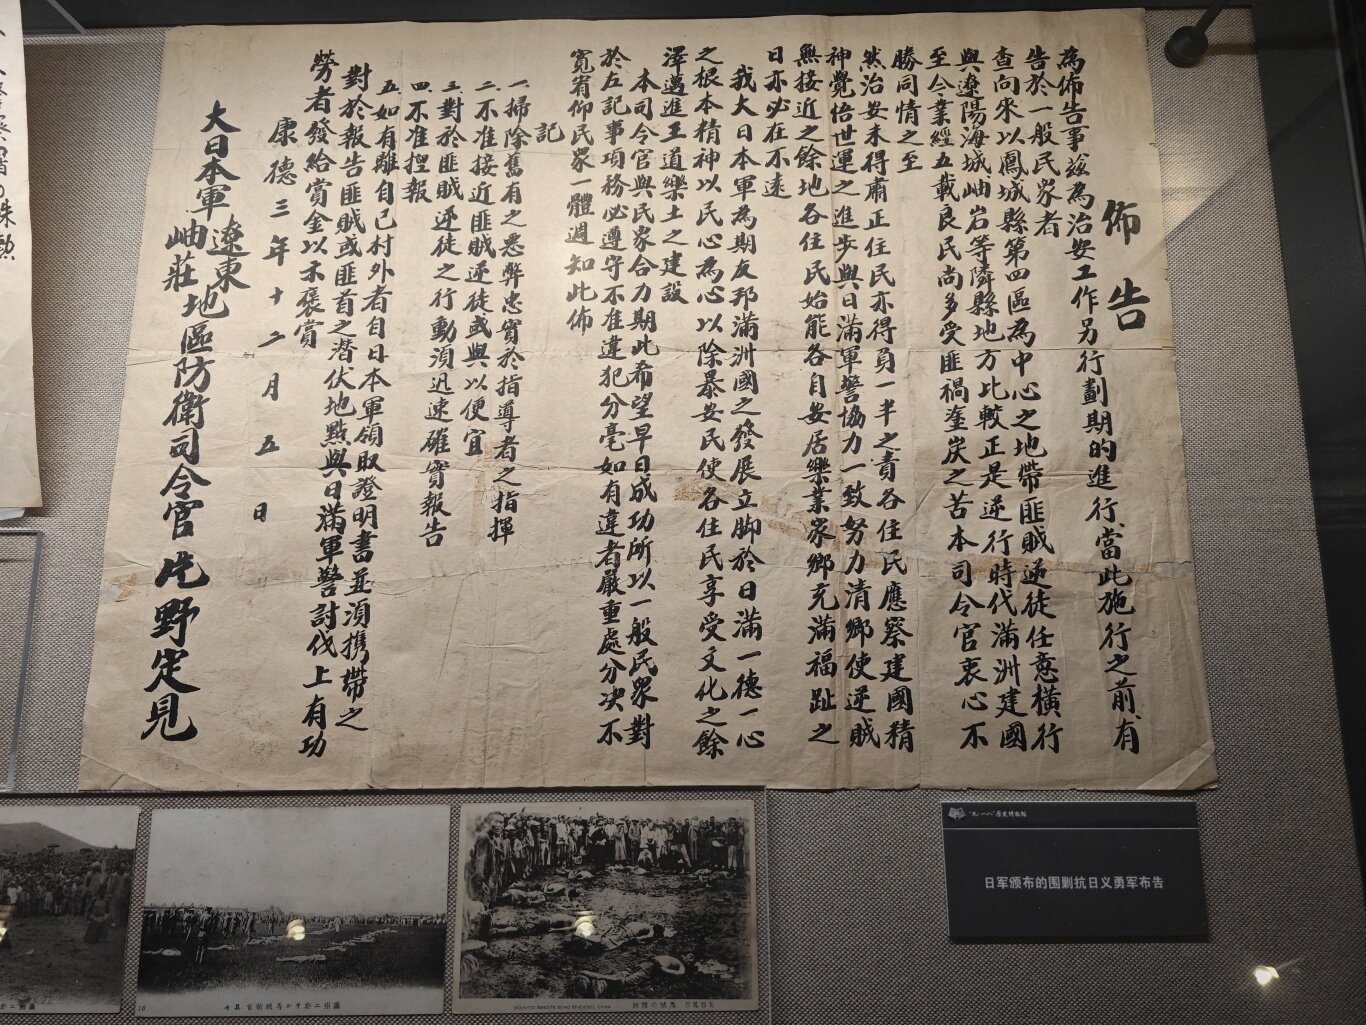 佈告
為佈告事茲為治安工作另行劃期的進行、當此施行之前、有
告於一般民眾者
查向來以鳳城縣第四區為中心之地帶匪賊逆徒任意橫行
與遼陽海城岫岩等隣縣地方比較正是逆行時代滿洲建國
至今業經五載良民尚多受匪禍塗炭之苦本司令官衷心不
勝同情之至
然治安未得肅正住民亦得負一半之責各住民應察建國精
神覺悟世運之進步與日滿軍警協力一致努力清鄉使逆賊
無接近之餘地各住民始能各自安居樂業家鄉充滿福趾之
日亦必在不遠
我大日本軍為期友邦滿洲國之發展立脚於日滿一德一心
之根本精神以民心為心以除暴安民使各住民享受文化之餘
澤邁進王道樂土之建設
本司令官與民眾合力期此希望早日成功所以一般民眾對
於左記事項務必遵守不准違犯分毫如有違者嚴重處分決不
寬宥仰民眾一體週知此佈
記
一、掃除舊有之惡弊忠實於指導者之指揮
二、不准接近匪賊逆徒或與以便宜
三、對於匪賊逆徒之行動須迅速確實報告
四、不准捏報
五、如有離自己村外者自日本軍領取證明書並須携帶之
對於報告匪賊或匪首之潛伏地點與日滿軍警討伐上有功
勞者發給賞金以示褒賞
康德三年十二月五日
大日本軍遼東岫莊地區防衛司令官片野定見
“九·一八”歷史博物館
日军颁布的围剿抗日义勇军布告
滿州ニ於ケル馬賊斬首其七
16